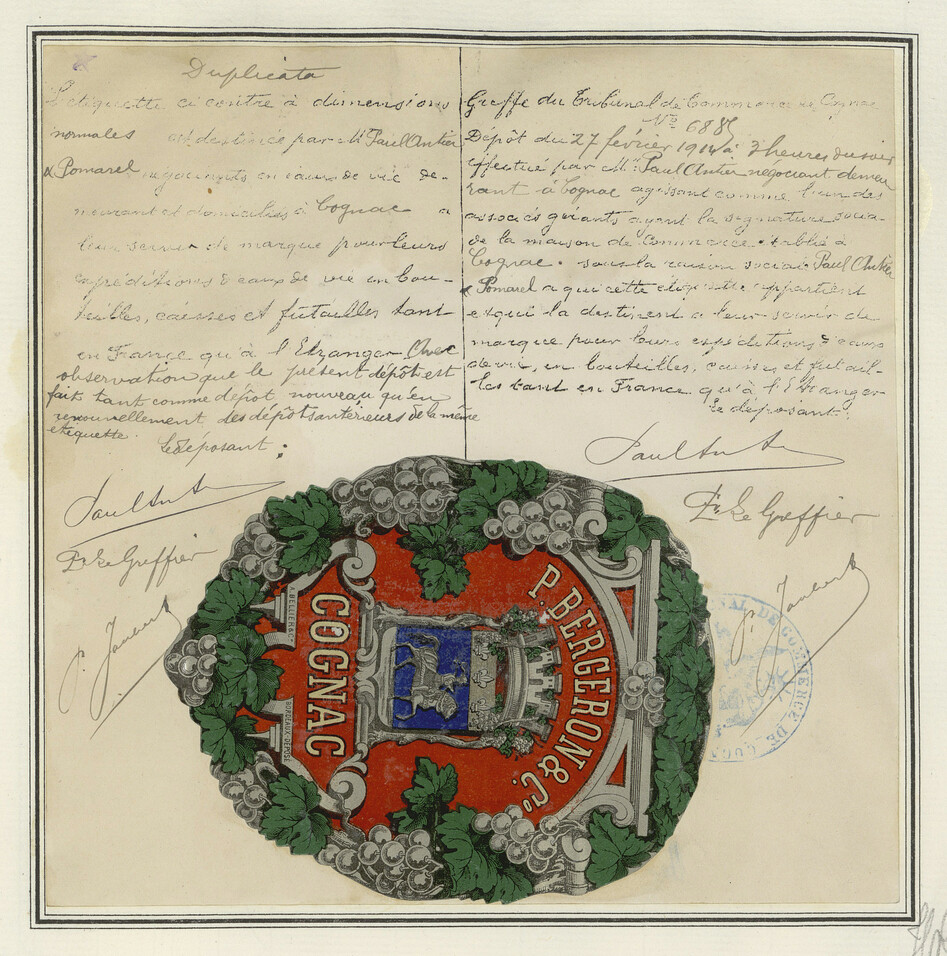 Duplicata
L'étiquette ci contre à dimensions
normales est destinée par Mr Paul Antier
& Pomarel négociants en eaux de vie de-
meurant et domiciliés à Cognac a
leur servir de marque pour leurs
expéditions d'eaux de vie en bou-
teilles, caisses et futailles tant
en France qu'à l'Etranger Avec
observation que le présent dépôt est
fait tant comme dépôt nouveau qu'en
renouvellement des dépôts antérieurs de la même
étiquette.
Le déposant:
Paul Antier
Pr Le Greffier
Greffe du Tribunal de Commerce de Cognac
No 6885
Dépôt du 27 février 1914 à 3 heures du soir
effectué par Mr Paul Antier négociant demeu
rant à Cognac agissant comme l'un des
associés gérants ayant la signature socia-
de la maison de Commerce établie à
Cognac. sous la raison sociale Paul Antier
& Pomarel a qui cette étiquette appartient
et qui la destinent a leur servir de
marque pour leurs expéditions d'eaux
de vie, en bouteilles, caisses et futail-
les tant en France qu'à l'Etranger
Le déposant:
Paul Antier
Pr Le Greffier
P. BERGERON & Co.
COGNAC
A. BELLIER & Cie
BORDEAUX-DÉPOSÉ
TRIBUNAL DE COMMERCE DE COGNAC